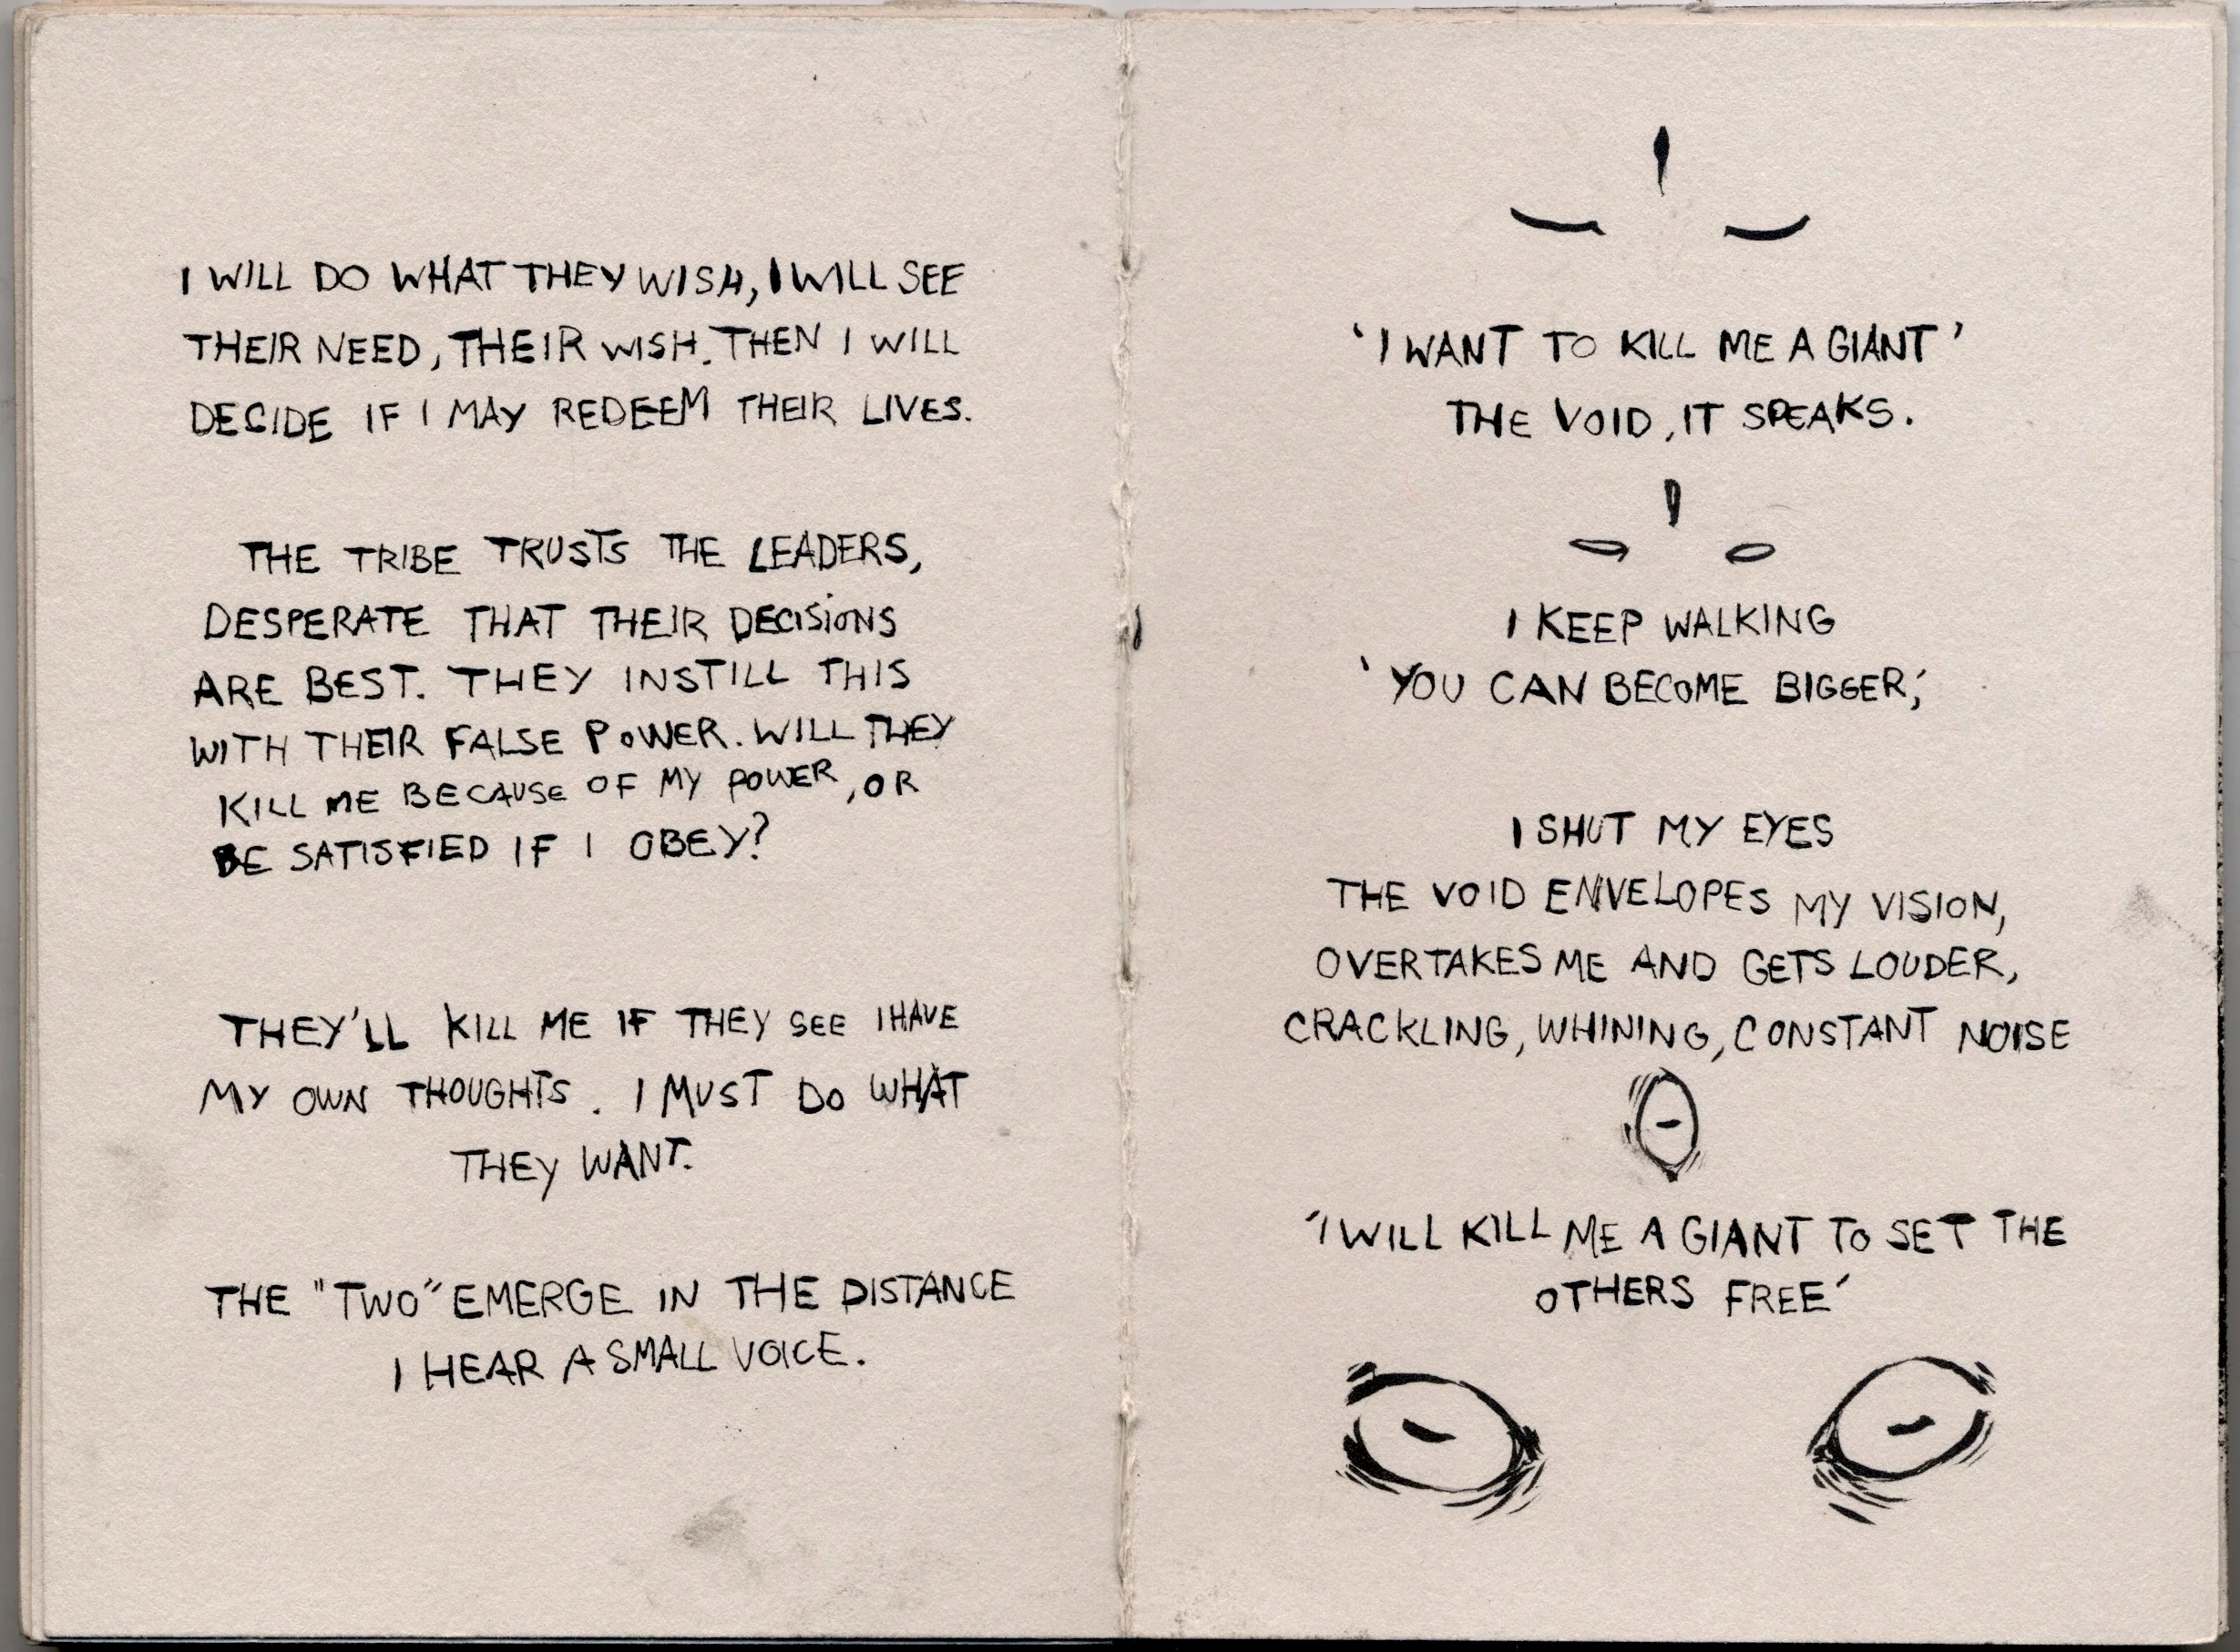 I WILL DO WHAT THEY WISH, I WILL SEE
THEIR NEED, THEIR WISH. THEN I WILL
DECIDE IF I MAY REDEEM THEIR LIVES.
THE TRIBE TRUSTS THE LEADERS,
DESPERATE THAT THEIR DECISIONS
ARE BEST. THEY INSTILL THIS
WITH THEIR FALSE POWER. WILL THEY
KILL ME BECAUSE OF MY POWER, OR
BE SATISFIED IF I OBEY?
THEY'LL KILL ME IF THEY SEE I HAVE
MY OWN THOUGHTS. I MUST DO WHAT
THEY WANT.
THE "TWO" EMERGE IN THE DISTANCE
I HEAR A SMALL VOICE.
'I WANT TO KILL ME A GIANT'
THE VOID, IT SPEAKS.
I KEEP WALKING
'YOU CAN BECOME BIGGER,'
I SHUT MY EYES
THE VOID ENVELOPES MY VISION,
OVERTAKES ME AND GETS LOUDER,
CRACKLING, WHINING, CONSTANT NOISE
'I WILL KILL ME A GIANT TO SET THE
OTHERS FREE'